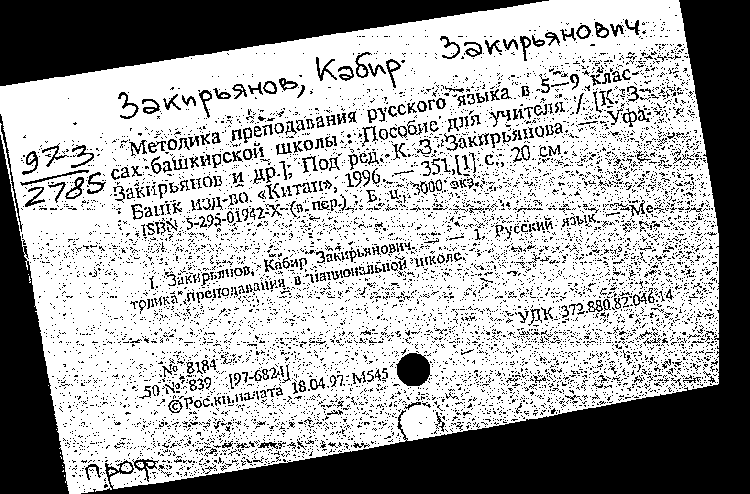 Закирьянов, Кабир Закирьянович.
97-3
2785
Методика преподавания русского языка в 5—9 клас-
сах башкирской школы : Пособие для учителя / [К. З.
Закирьянов и др.]; Под ред. К. З. Закирьянова. — Уфа:
Башк. изд-во «Китап», 1996. — 351,[1] с.; 20 см.
ISBN 5-295-01942-X (в пер.) : Б. ц., 3000 экз.
1. Закирьянов, Кабир Закирьянович. — — 1. Русский язык — Ме-
тодика преподавания в национальной школе.
УДК 372.880.82.046.14
№ 8184
50 № 839 [97-6824]
©Рос.кн.палата 18.04.97. М545
проф.